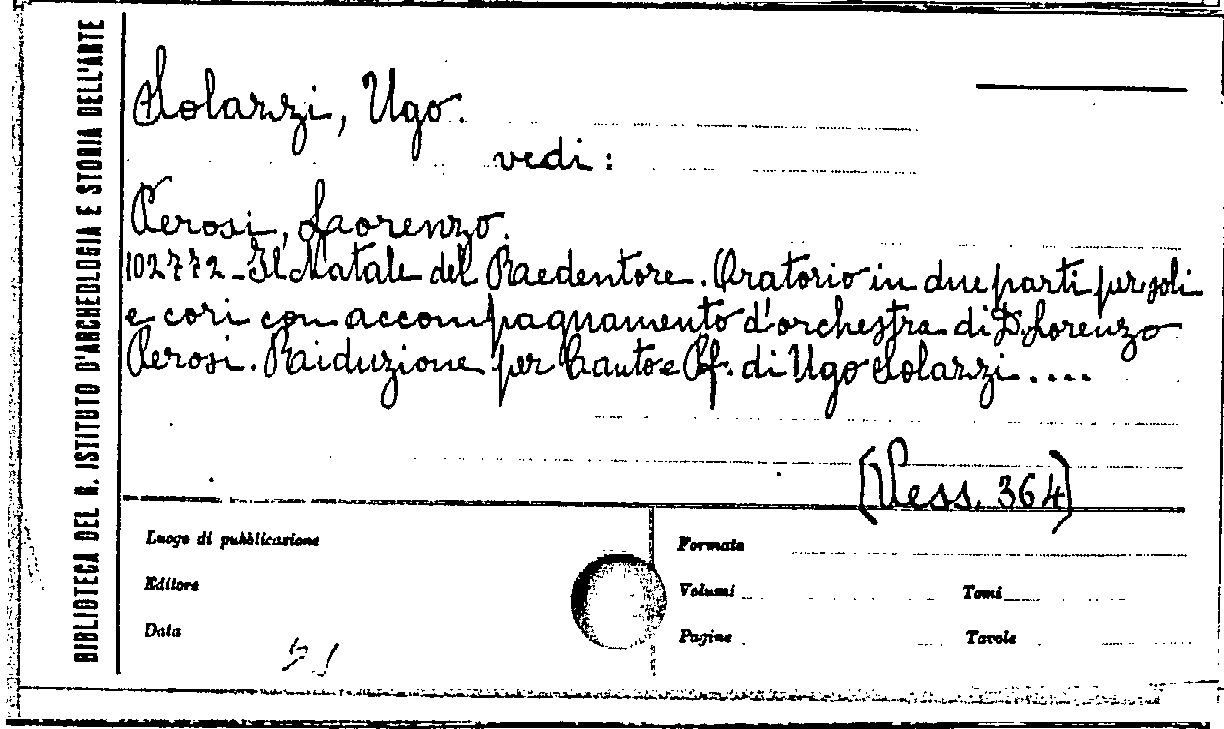 BIBLIOTECA DEL R. ISTITUTO D'ARCHEOLOGIA E STORIA DELL'ARTE
Solazzi, Ugo.
vedi :
Perosi, Laorenzo.
102772 - Il Natale del Raedentore. Oratorio in due parti per soli
e cori con accompagnamento d'orchestra di D. Lorenzo
Perosi. Raiduzione per Canto e Pf. di Ugo Solazzi....
[Vess. 364]
Luogo di pubblicazione
Editore
Data
Formato
Volumi Tomi
Pagine Tavole